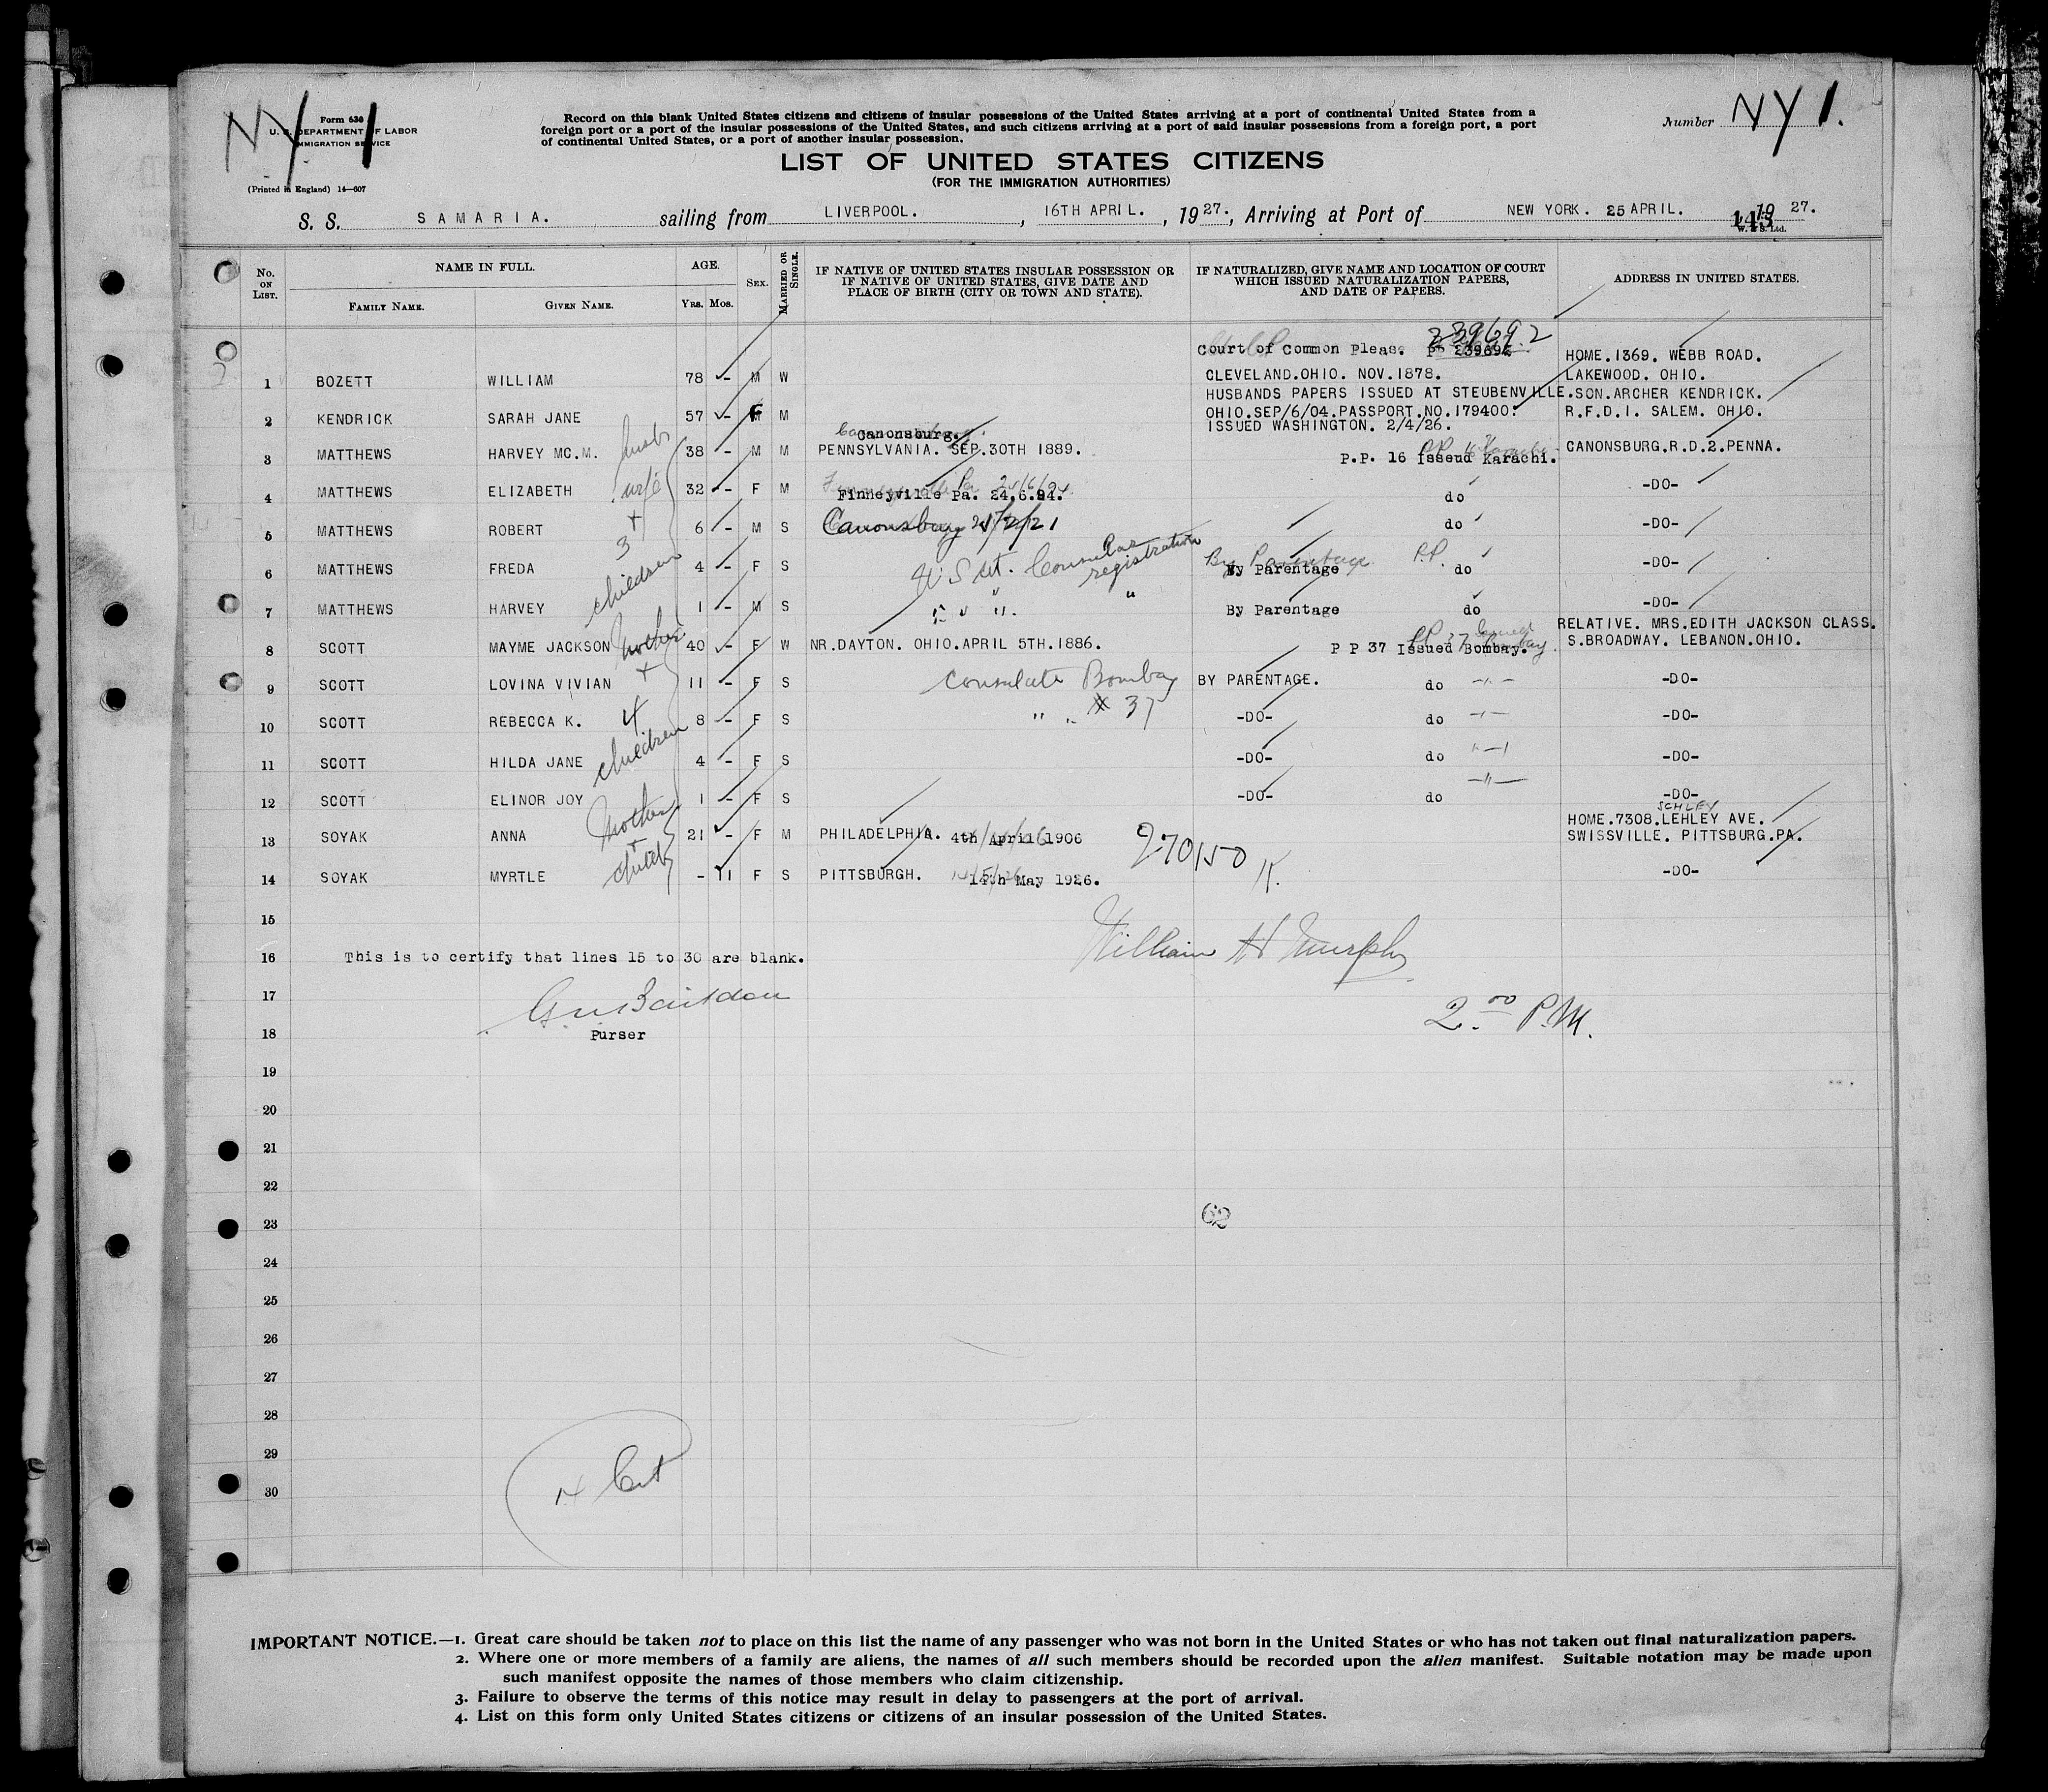 NY 1
Form 630
U. S. DEPARTMENT OF LABOR
IMMIGRATION SERVICE
(Printed in England) 14—607
Record on this blank United States citizens and citizens of insular possessions of the United States arriving at a port of continental United States from a
foreign port or a port of the insular possessions of the United States, and such citizens arriving at a port of said insular possessions from a foreign port, a port
of continental United States, or a port of another insular possession.
Number NY 1.
LIST OF UNITED STATES CITIZENS
(FOR THE IMMIGRATION AUTHORITIES)
S. S. SAMARIA. sailing from LIVERPOOL. , 16TH APRIL. , 1927., Arriving at Port of NEW YORK. 25 APRIL. 1927.
143
W. & S. Ltd.
No. ON LIST. NAME IN FULL. AGE. SEX. MARRIED OR SINGLE. IF NATIVE OF UNITED STATES INSULAR POSSESSION OR IF NATIVE OF UNITED STATES, GIVE DATE AND PLACE OF BIRTH (CITY OR TOWN AND STATE). IF NATURALIZED, GIVE NAME AND LOCATION OF COURT WHICH ISSUED NATURALIZATION PAPERS, AND DATE OF PAPERS. ADDRESS IN UNITED STATES.
FAMILY NAME. GIVEN NAME. YRS. MOS.
239692
Court of Common Pleas. PP 239692 HOME.1369. WEBB ROAD.
1 BOZETT WILLIAM 78 - M W CLEVELAND.OHIO. NOV.1878. LAKEWOOD. OHIO.
HUSBANDS PAPERS ISSUED AT STEUBENVILLE. SON.ARCHER KENDRICK.
2 KENDRICK SARAH JANE 57 - F M OHIO.SEP/6/04.PASSPORT.NO.179400. R.F.D.I. SALEM. OHIO.
ISSUED WASHINGTON. 2/4/26.
Canonsburg.
3 MATTHEWS HARVEY MC.M. 38 - M M PENNSYLVANIA. SEP.30TH 1889. P.P. 16 Isseud Karachi. CANONSBURG.R.D.2.PENNA.
4 MATTHEWS ELIZABETH wife 32 - F M Finneyville Pa. 24.6.94. do -DO-
5 MATTHEWS ROBERT + 6 - M S Canonsburg 21/2/21 do -DO-
3
6 MATTHEWS FREDA children 4 - F S U S Consular registration By Parentage P.P. do -DO-
7 MATTHEWS HARVEY 1 - M S " " " " By Parentage do -DO-
RELATIVE. MRS.EDITH JACKSON CLASS.
8 SCOTT MAYME JACKSON Mother 40 - F W NR.DAYTON. OHIO.APRIL 5TH.1886. P P 37 Issued Bombay. S.BROADWAY. LEBANON.OHIO.
9 SCOTT LOVINA VIVIAN + 11 - F S Consulate Bombay BY PARENTAGE. do -DO-
10 SCOTT REBECCA K. 4 8 - F S " " # 37 -DO- do -DO-
11 SCOTT HILDA JANE children 4 - F S -DO- do -DO-
12 SCOTT ELINOR JOY 1 - F S -DO- do -DO-
SCHLEY
HOME.7308.LEHLEY AVE.
13 SOYAK ANNA Mother + 21 - F M PHILADELPHIA. 4th April 1906 270150 SWISSVILLE. PITTSBURG.PA.
14 SOYAK MYRTLE child - 11 F S PITTSBURGH. 14th May 1926. -DO-
15
16 This is to certify that lines 15 to 30 are blank. William H Murphy
17
2.00 P.M.
18 Purser
19
20
21
22
23 62
24
25
26
27
28
29
30
IMPORTANT NOTICE.—1. Great care should be taken not to place on this list the name of any passenger who was not born in the United States or who has not taken out final naturalization papers.
2. Where one or more members of a family are aliens, the names of all such members should be recorded upon the alien manifest. Suitable notation may be made upon
such manifest opposite the names of those members who claim citizenship.
3. Failure to observe the terms of this notice may result in delay to passengers at the port of arrival.
4. List on this form only United States citizens or citizens of an insular possession of the United States.